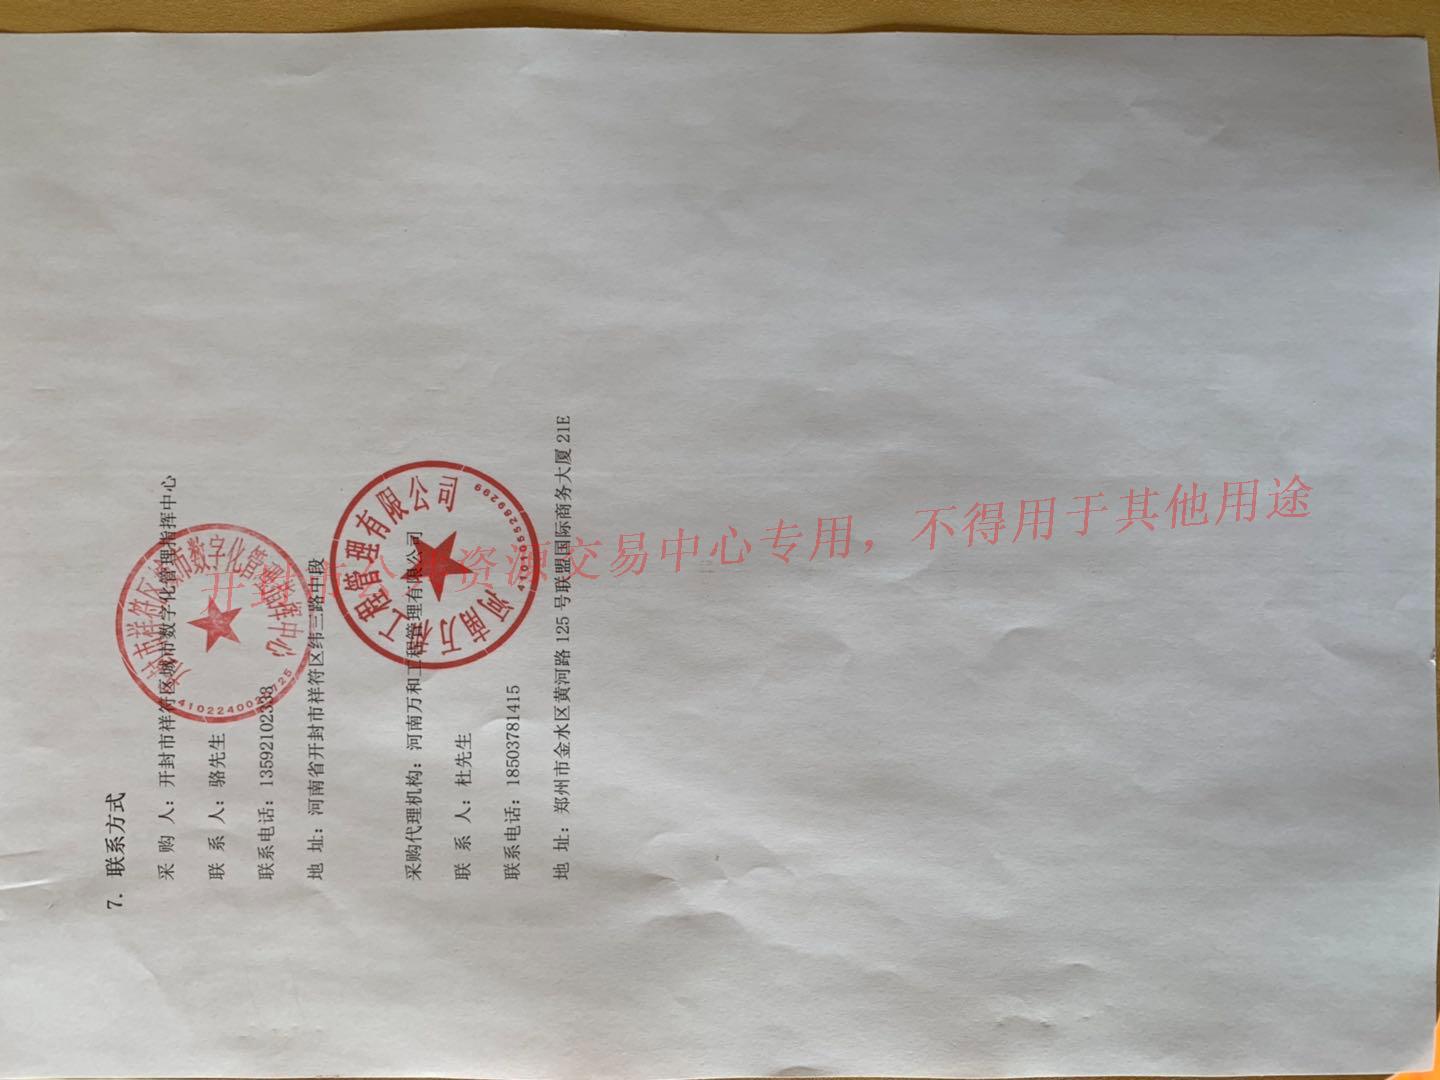 7. 联系方式
采 购 人：开封市祥符区城市数字化管理指挥中心
联 系 人：骆先生
联系电话：13592102338
地 址：河南省开封市祥符区纬三路中段
采购代理机构：河南万和工程管理有限公司
联 系 人：杜先生
联系电话：18503781415
地 址：郑州市金水区黄河路 125 号联盟国际商务大厦 21E
开封市祥符区城市数字化管理指挥中心
河南万和工程管理有限公司
4101055289299
开封市公共资源交易中心专用，不得用于其他用途